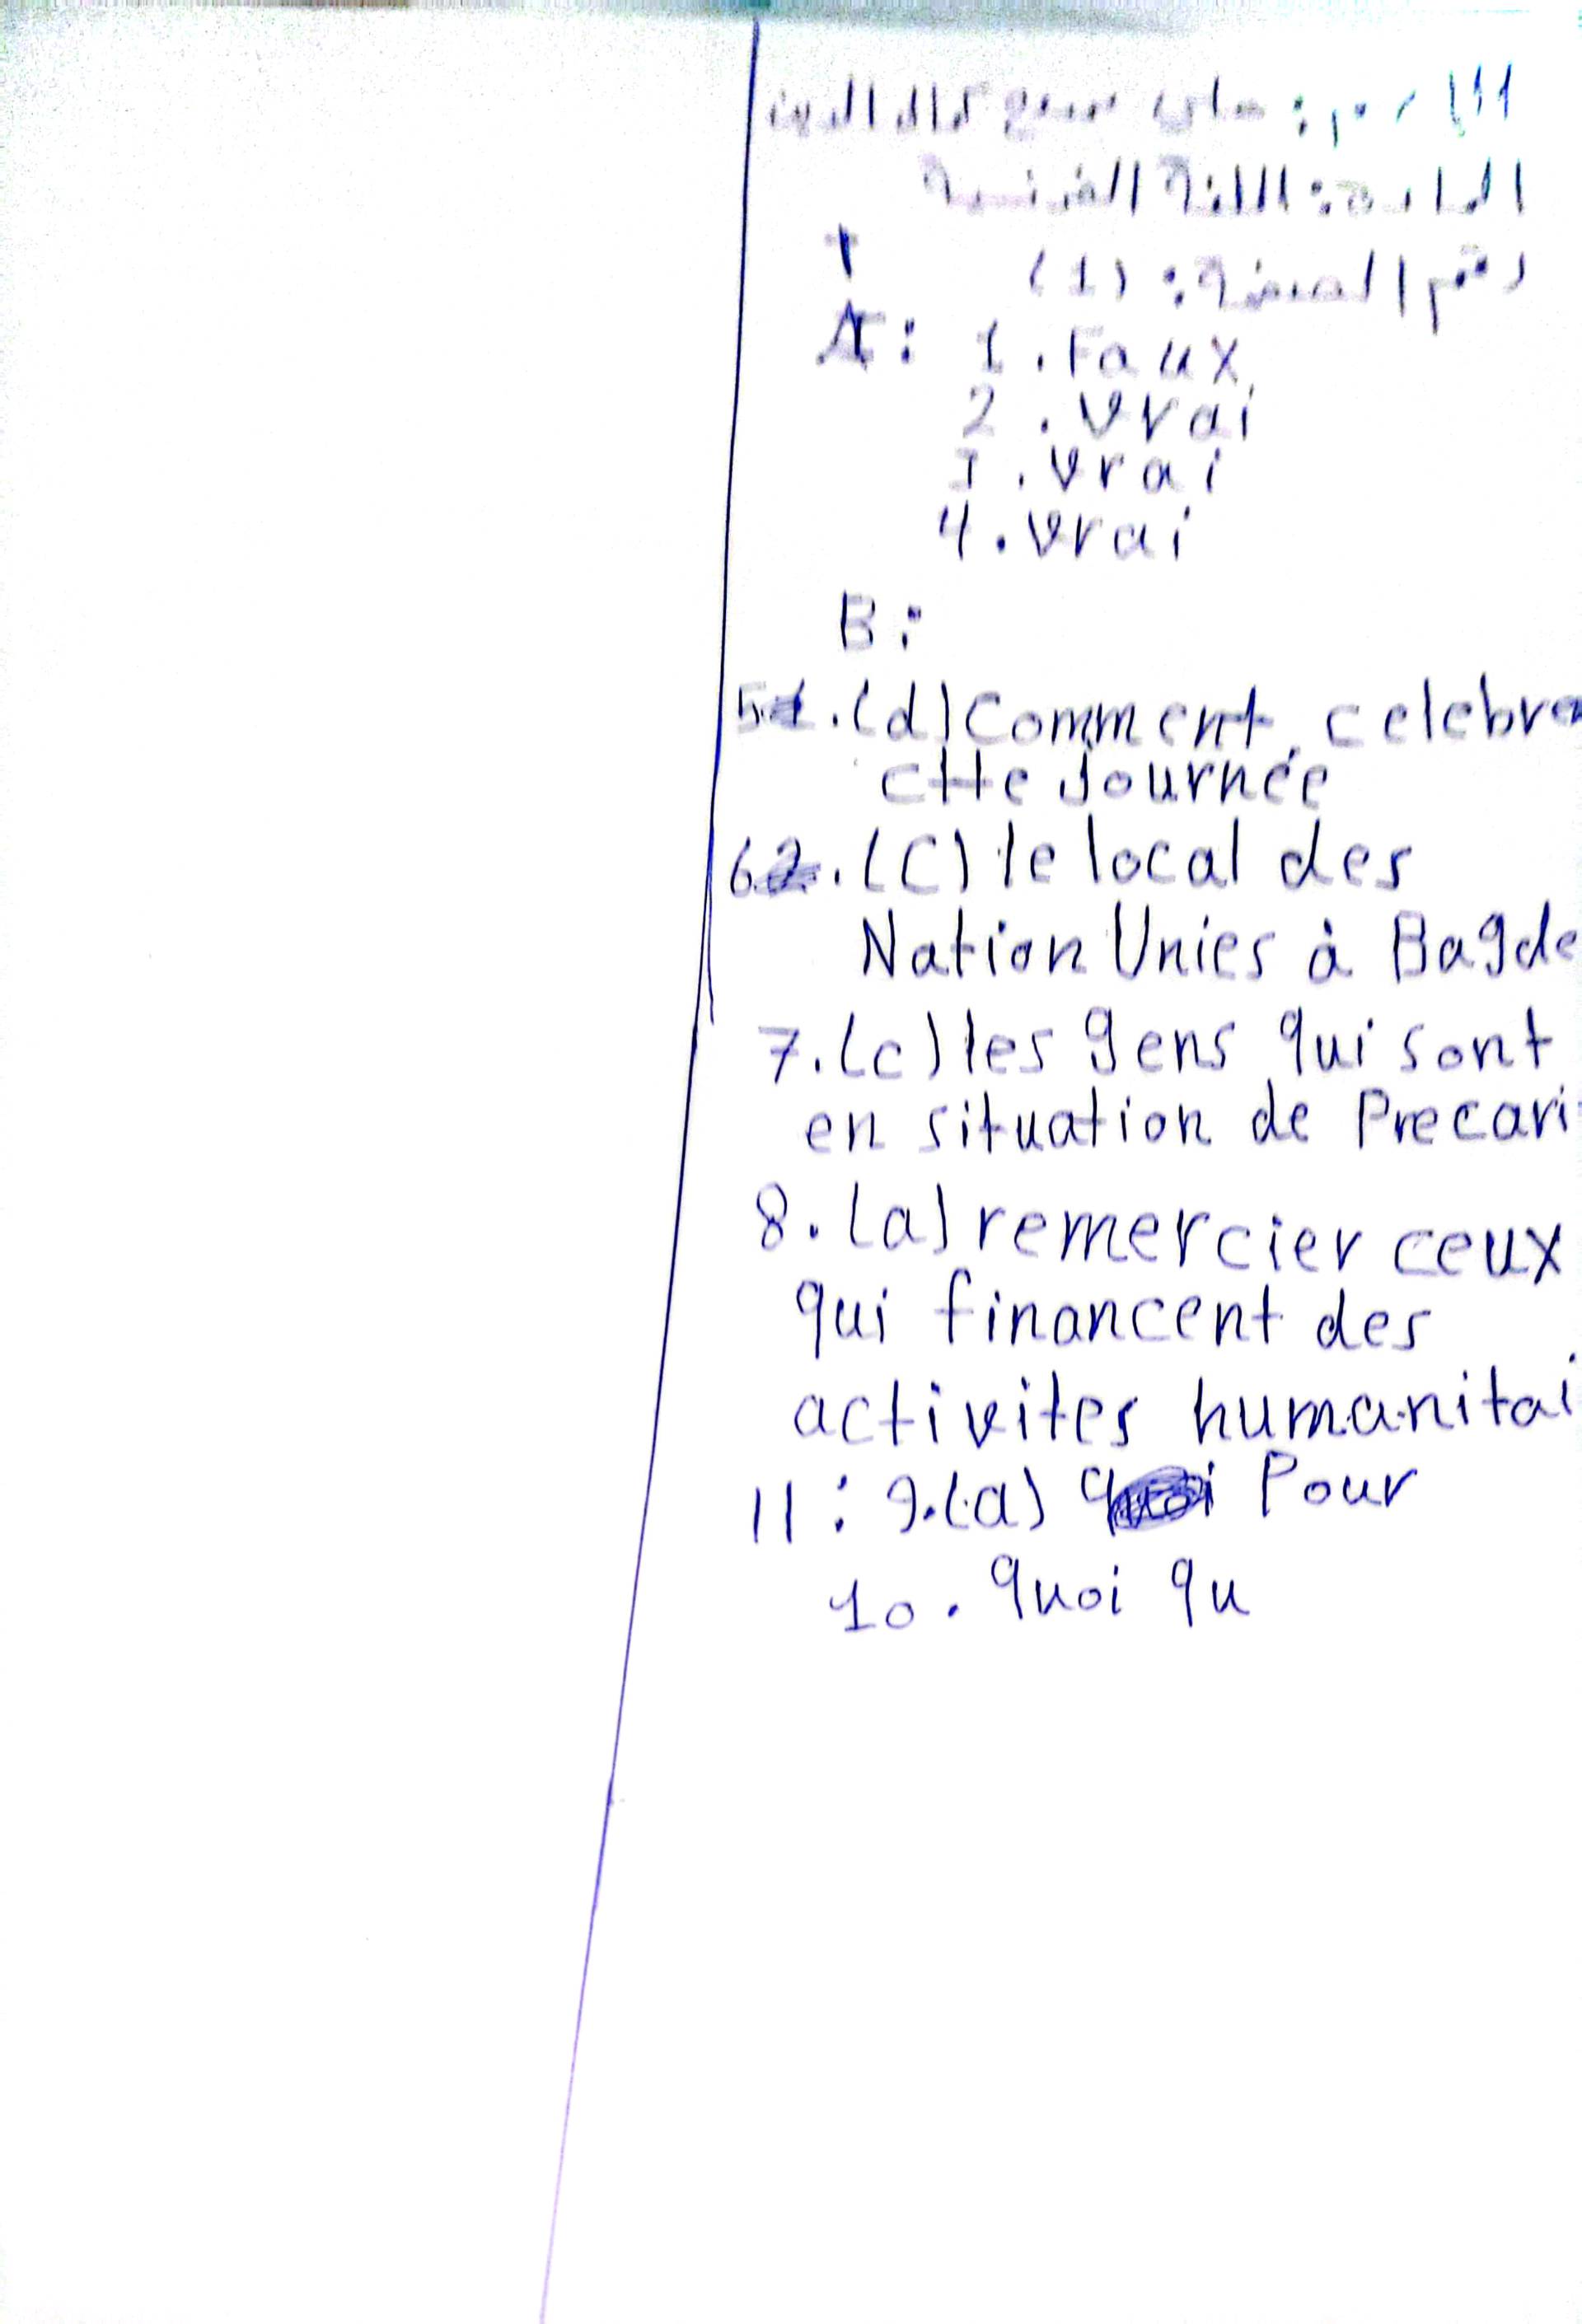 الاسم: علي
المادة: اللغة الفرنسية
رقم الصفحة: (1)
I
A: 1. Faux
2. Vrai
3. Vrai
4. Vrai
B:
5. (d) Comment celebre
ctte Journée
6. (C) le local des
Nation Unies à Bagde
7. (c) les gens qui sont
en situation de Precari
8. (a) remercier ceux
qui financent des
activites humanitai
II: 9. (a) Pour
10. quoi qu